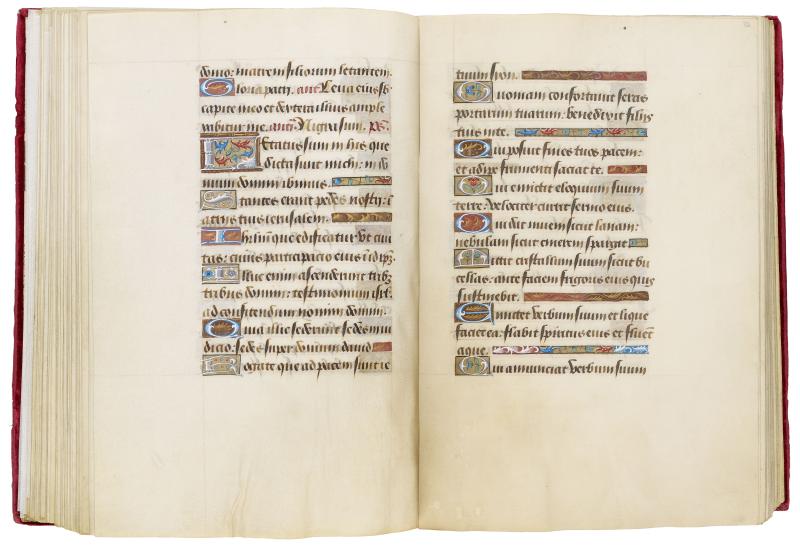 domo: matrem filiorum letantem.
Gloria patri. ant Leva eius sb
capite meo et dextera illius ample
xabitur me. anti Nigra sum. ps.
Letatus sum in his que
dicta sunt michi: in do
mum domini ibimus.
Stantes erant pedes nostri: i
atriis tuis ierusalem.
Iherusalem que edificatur ut civi
tas: cuius participacio eius i idip
Illuc enim ascenderunt trib
tribus domini: testimonium isrl
ad confitendum nomini domini.
Quia illic sederunt sedes in iu
dicio: sedes super domum david
Rogate que ad pacem sunt ie
tuum syon.
Quoniam confortavit seras
portarum tuarum: benedixit filiis
tuis in te.
Qui posuit fines tuos pacem:
et adipe frumenti saciat te.
Qui emittit eloquium suum
terre: velociter currit sermo eius.
Qui dat nivem sicut lanam:
nebulam sicut cinerem spargit
Mittit cristallum suum sicut bu
cellas: ante faciem frigoris eius quis
sustinebit.
Emittet verbum suum et lique
faciet ea: flabit spiritus eius et fluent
aque.
Qui annunciat verbum suum